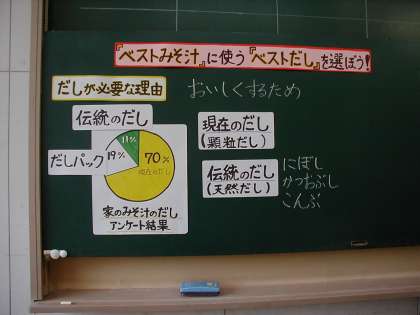 『ベストみそ汁』に使う『ベストだし』を選ぼう!
だしが必要な理由
おいしくするため
伝統のだし
11%
だしパック
19%
70%
現在のだし
家のみそ汁のだし
アンケート結果
現在のだし
(顆粒だし)
伝統のだし
(天然だし)
にぼし
かつおぶし
こんぶ